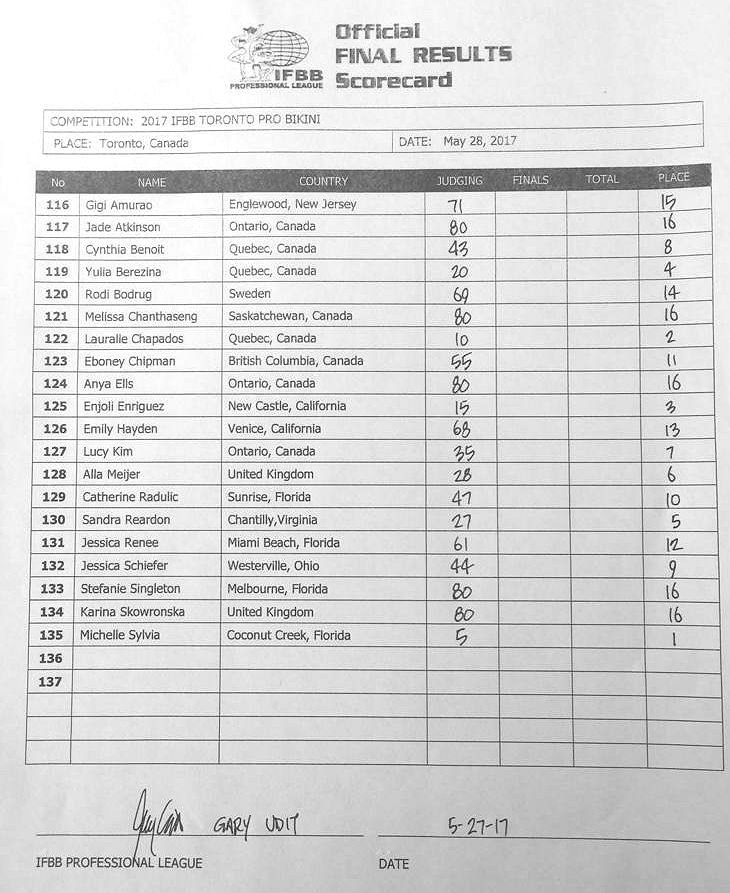 Official
FINAL RESULTS
Scorecard
IFBB
PROFESSIONAL LEAGUE
COMPETITION: 2017 IFBB TORONTO PRO BIKINI
PLACE: Toronto, Canada DATE: May 28, 2017
No NAME COUNTRY JUDGING FINALS TOTAL PLACE
116 Gigi Amurao Englewood, New Jersey 71 15
117 Jade Atkinson Ontario, Canada 80 16
118 Cynthia Benoit Quebec, Canada 43 8
119 Yulia Berezina Quebec, Canada 20 4
120 Rodi Bodrug Sweden 69 14
121 Melissa Chanthaseng Saskatchewan, Canada 80 16
122 Lauralie Chapados Quebec, Canada 10 2
123 Eboney Chipman British Columbia, Canada 55 11
124 Anya Ells Ontario, Canada 80 16
125 Enjoli Enriguez New Castle, California 15 3
126 Emily Hayden Venice, California 68 13
127 Lucy Kim Ontario, Canada 35 7
128 Alla Meijer United Kingdom 28 6
129 Catherine Radulic Sunrise, Florida 47 10
130 Sandra Reardon Chantilly,Virginia 27 5
131 Jessica Renee Miami Beach, Florida 61 12
132 Jessica Schiefer Westerville, Ohio 44 9
133 Stefanie Singleton Melbourne, Florida 80 16
134 Karina Skowronska United Kingdom 80 16
135 Michelle Sylvia Coconut Creek, Florida 5 1
136
137
GARY UDIT 5-27-17
IFBB PROFESSIONAL LEAGUE DATE